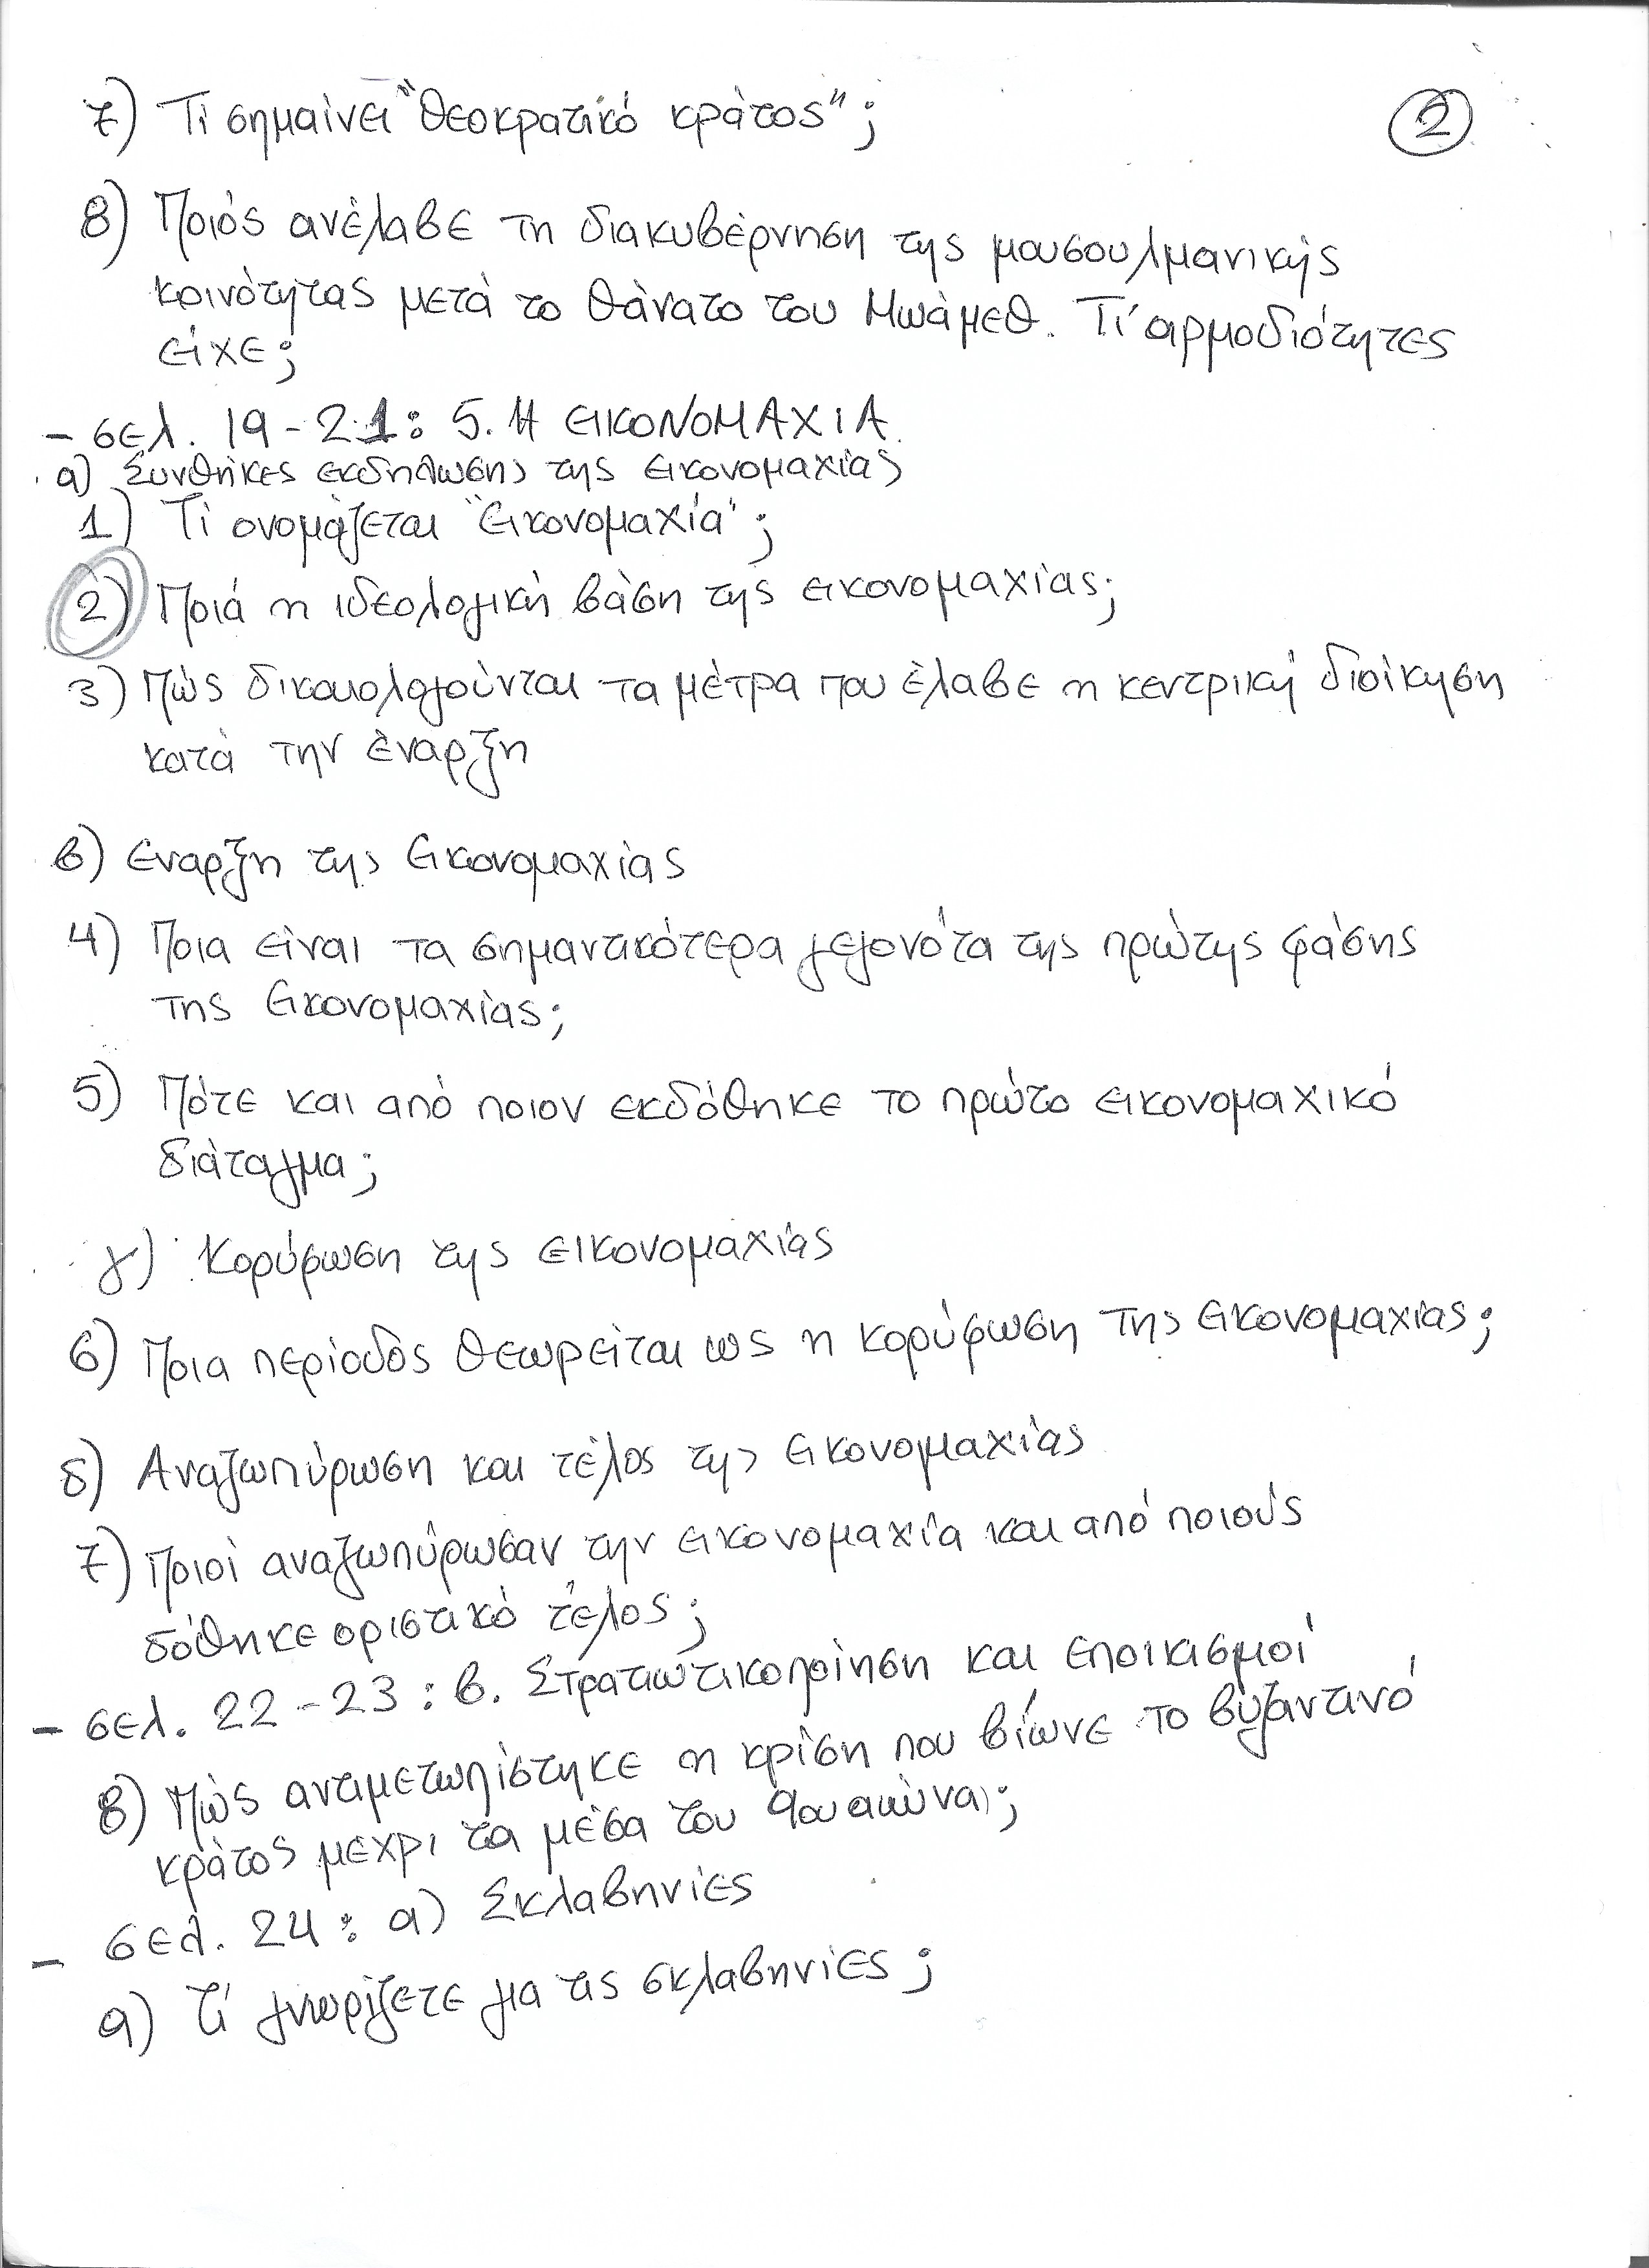 7) Τι σημαίνει "θεοκρατικό κράτος";
2
8) Ποιός ανέλαβε τη διακυβέρνηση της μουσουλμανικής
κοινότητας μετά το θάνατο του Μωάμεθ. Τί αρμοδιότητες
είχε;
- σελ. 19-21: 5. Η ΕΙΚΟΝΟΜΑΧΙΑ
α) Συνθήκες εκδήλωσης της εικονομαχίας
1) Τί ονομάζεται "Εικονομαχία";
2) Ποιά η ιδεολογική βάση της εικονομαχίας;
3) Πώς δικαιολογούνται τα μέτρα που έλαβε η κεντρική διοίκηση
κατά την έναρξη
β) Έναρξη της Εικονομαχίας
4) Ποια είναι τα σημαντικότερα γεγονότα της πρώτης φάσης
της Εικονομαχίας;
5) Πότε και από ποιον εκδόθηκε το πρώτο εικονομαχικό
διάταγμα;
γ) Κορύφωση της εικονομαχίας
6) Ποια περίοδος θεωρείται ως η κορύφωση της Εικονομαχίας;
δ) Αναζωπύρωση και τέλος της Εικονομαχίας
7) Ποιοί αναζωπύρωσαν την εικονομαχία και από ποιούς
δόθηκε οριστικό τέλος;
- σελ. 22-23: β. Στρατιωτικοποίηση και εποικισμοί
8) Πώς αντιμετωπίστηκε η κρίση που βίωνε το βυζαντινό
κράτος μεχρι τα μέσα του 9ου αιώνα;
- σελ. 24: α) Σκλαβηνίες
9) Τί γνωρίζετε για τις σκλαβηνίες;